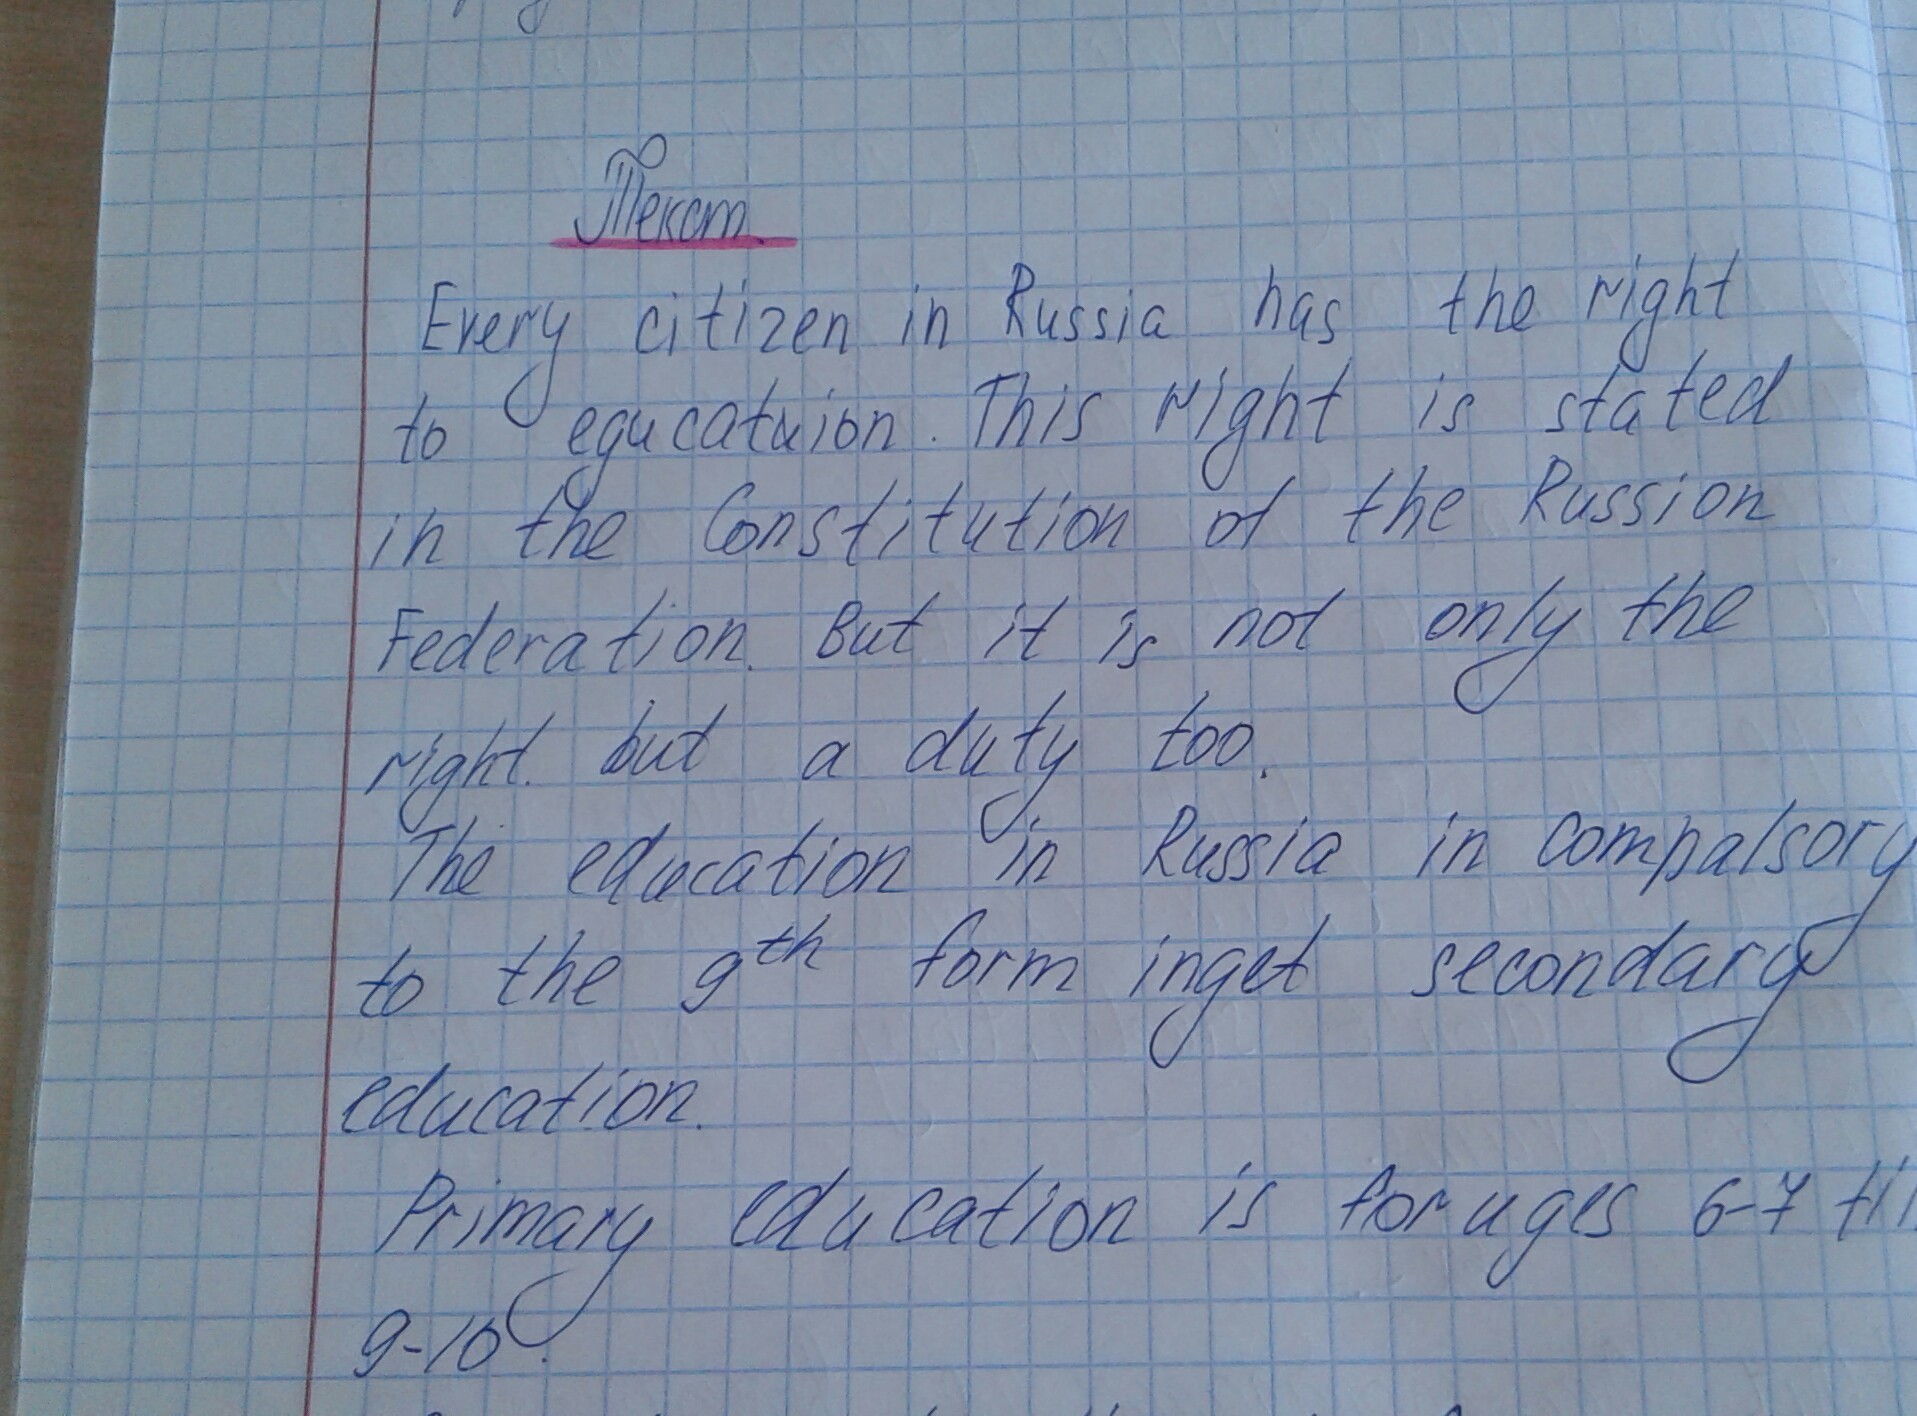 Текст.
Every citizen in Russia has the right
to egucatuion. This right is stated
in the Constitution of the Russion
Federation. But it is not only the
right. but a duty too.
The education in Russia in compalsory
to the 9th form inget secondary
education.
Primary education is for uges 6-7 til
9-10.